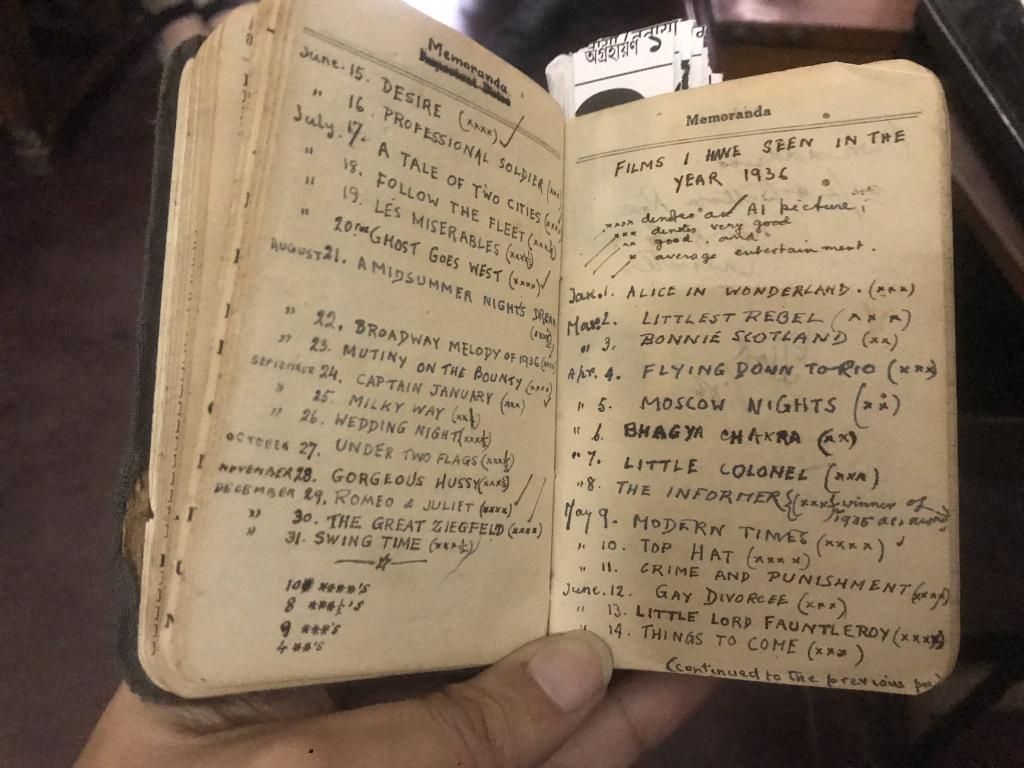 Memoranda
June. 15. DESIRE (xxxx) ✓
" 16. PROFESSIONAL SOLDIER
July. 17. A TALE OF TWO CITIES
" 18. FOLLOW THE FLEET
" 19. LES MISERABLES
" 20. GHOST GOES WEST (xxxx) ✓
AUGUST 21. A MIDSUMMER NIGHT'S DREAM
" 22. BROADWAY MELODY OF 1936
" 23. MUTINY ON THE BOUNTY (xxxx) ✓
SEPTEMBER 24. CAPTAIN JANUARY (xxx)
" 25. MILKY WAY (xx½)
" 26. WEDDING NIGHT (xxx½)
OCTOBER 27. UNDER TWO FLAGS (xxx½)
NOVEMBER 28. GORGEOUS HUSSY
DECEMBER 29. ROMEO & JULIET (xxxx)
" 30. THE GREAT ZIEGFELD (xxxx)
" 31. SWING TIME (xxx½)
10 xxxx'S
8 xxx½'S
9 xxx'S
4 xx'S
অগ্রহায়ণ ১
Memoranda
FILMS I HAVE SEEN IN THE
YEAR 1936
xxxx denotes an A1 picture;
xxx denotes very good
xx good, and
x average entertainment.
Jan. 1. ALICE IN WONDERLAND. (xxx)
Mar. 2. LITTLEST REBEL (xxx)
" 3. BONNIE SCOTLAND (xx)
Apr. 4. FLYING DOWN TO RIO (xxx)
" 5. MOSCOW NIGHTS
" 6. BHAGYA CHAKRA (xx)
" 7. LITTLE COLONEL (xxx)
" 8. THE INFORMER winner of
1935
May 9. MODERN TIMES (xxxx) ✓
" 10. TOP HAT (xxxx)
" 11. CRIME AND PUNISHMENT
June. 12. GAY DIVORCEE (xxx)
" 13. LITTLE LORD FAUNTLEROY
" 14. THINGS TO COME (xxx)
(continued to the previous